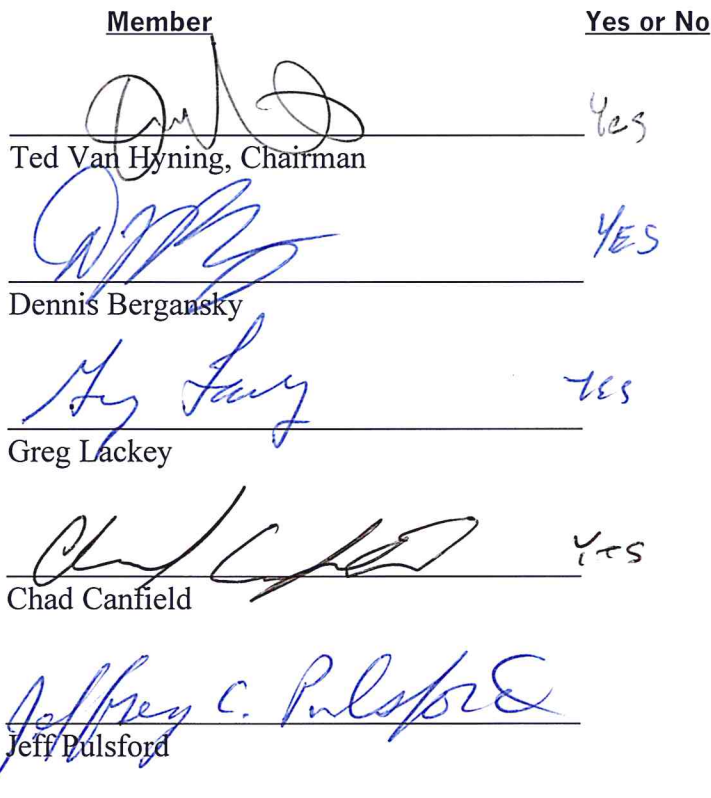 Member Yes or No
Yes
Ted Van Hyning, Chairman
YES
Dennis Bergansky
YES
Greg Lackey
Yes
Chad Canfield
Jeffrey C. Pulsford
Jeff Pulsford